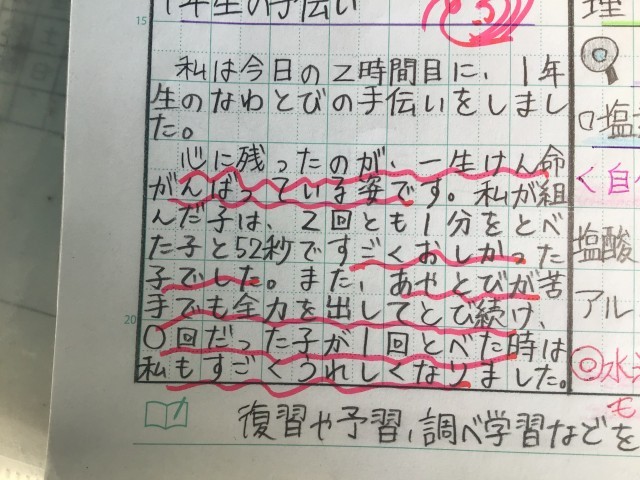 1年生の手伝い
私は今日の2時間目に、1年
生のなわとびの手伝いをしまし
た。
心に残ったのが、一生けん命
がんばっている姿です。私が組
んだ子は、2回とも1分をとべ
た子と52秒ですごくおしかった
子でした。また、あやとびが苦
手でも全力を出してとび続け、
0回だった子が1回とべた時は
私もすごくうれしくなりました。
復習や予習、調べ学習などを
15
20
理
塩
く自
塩酸
アル
◎水
も